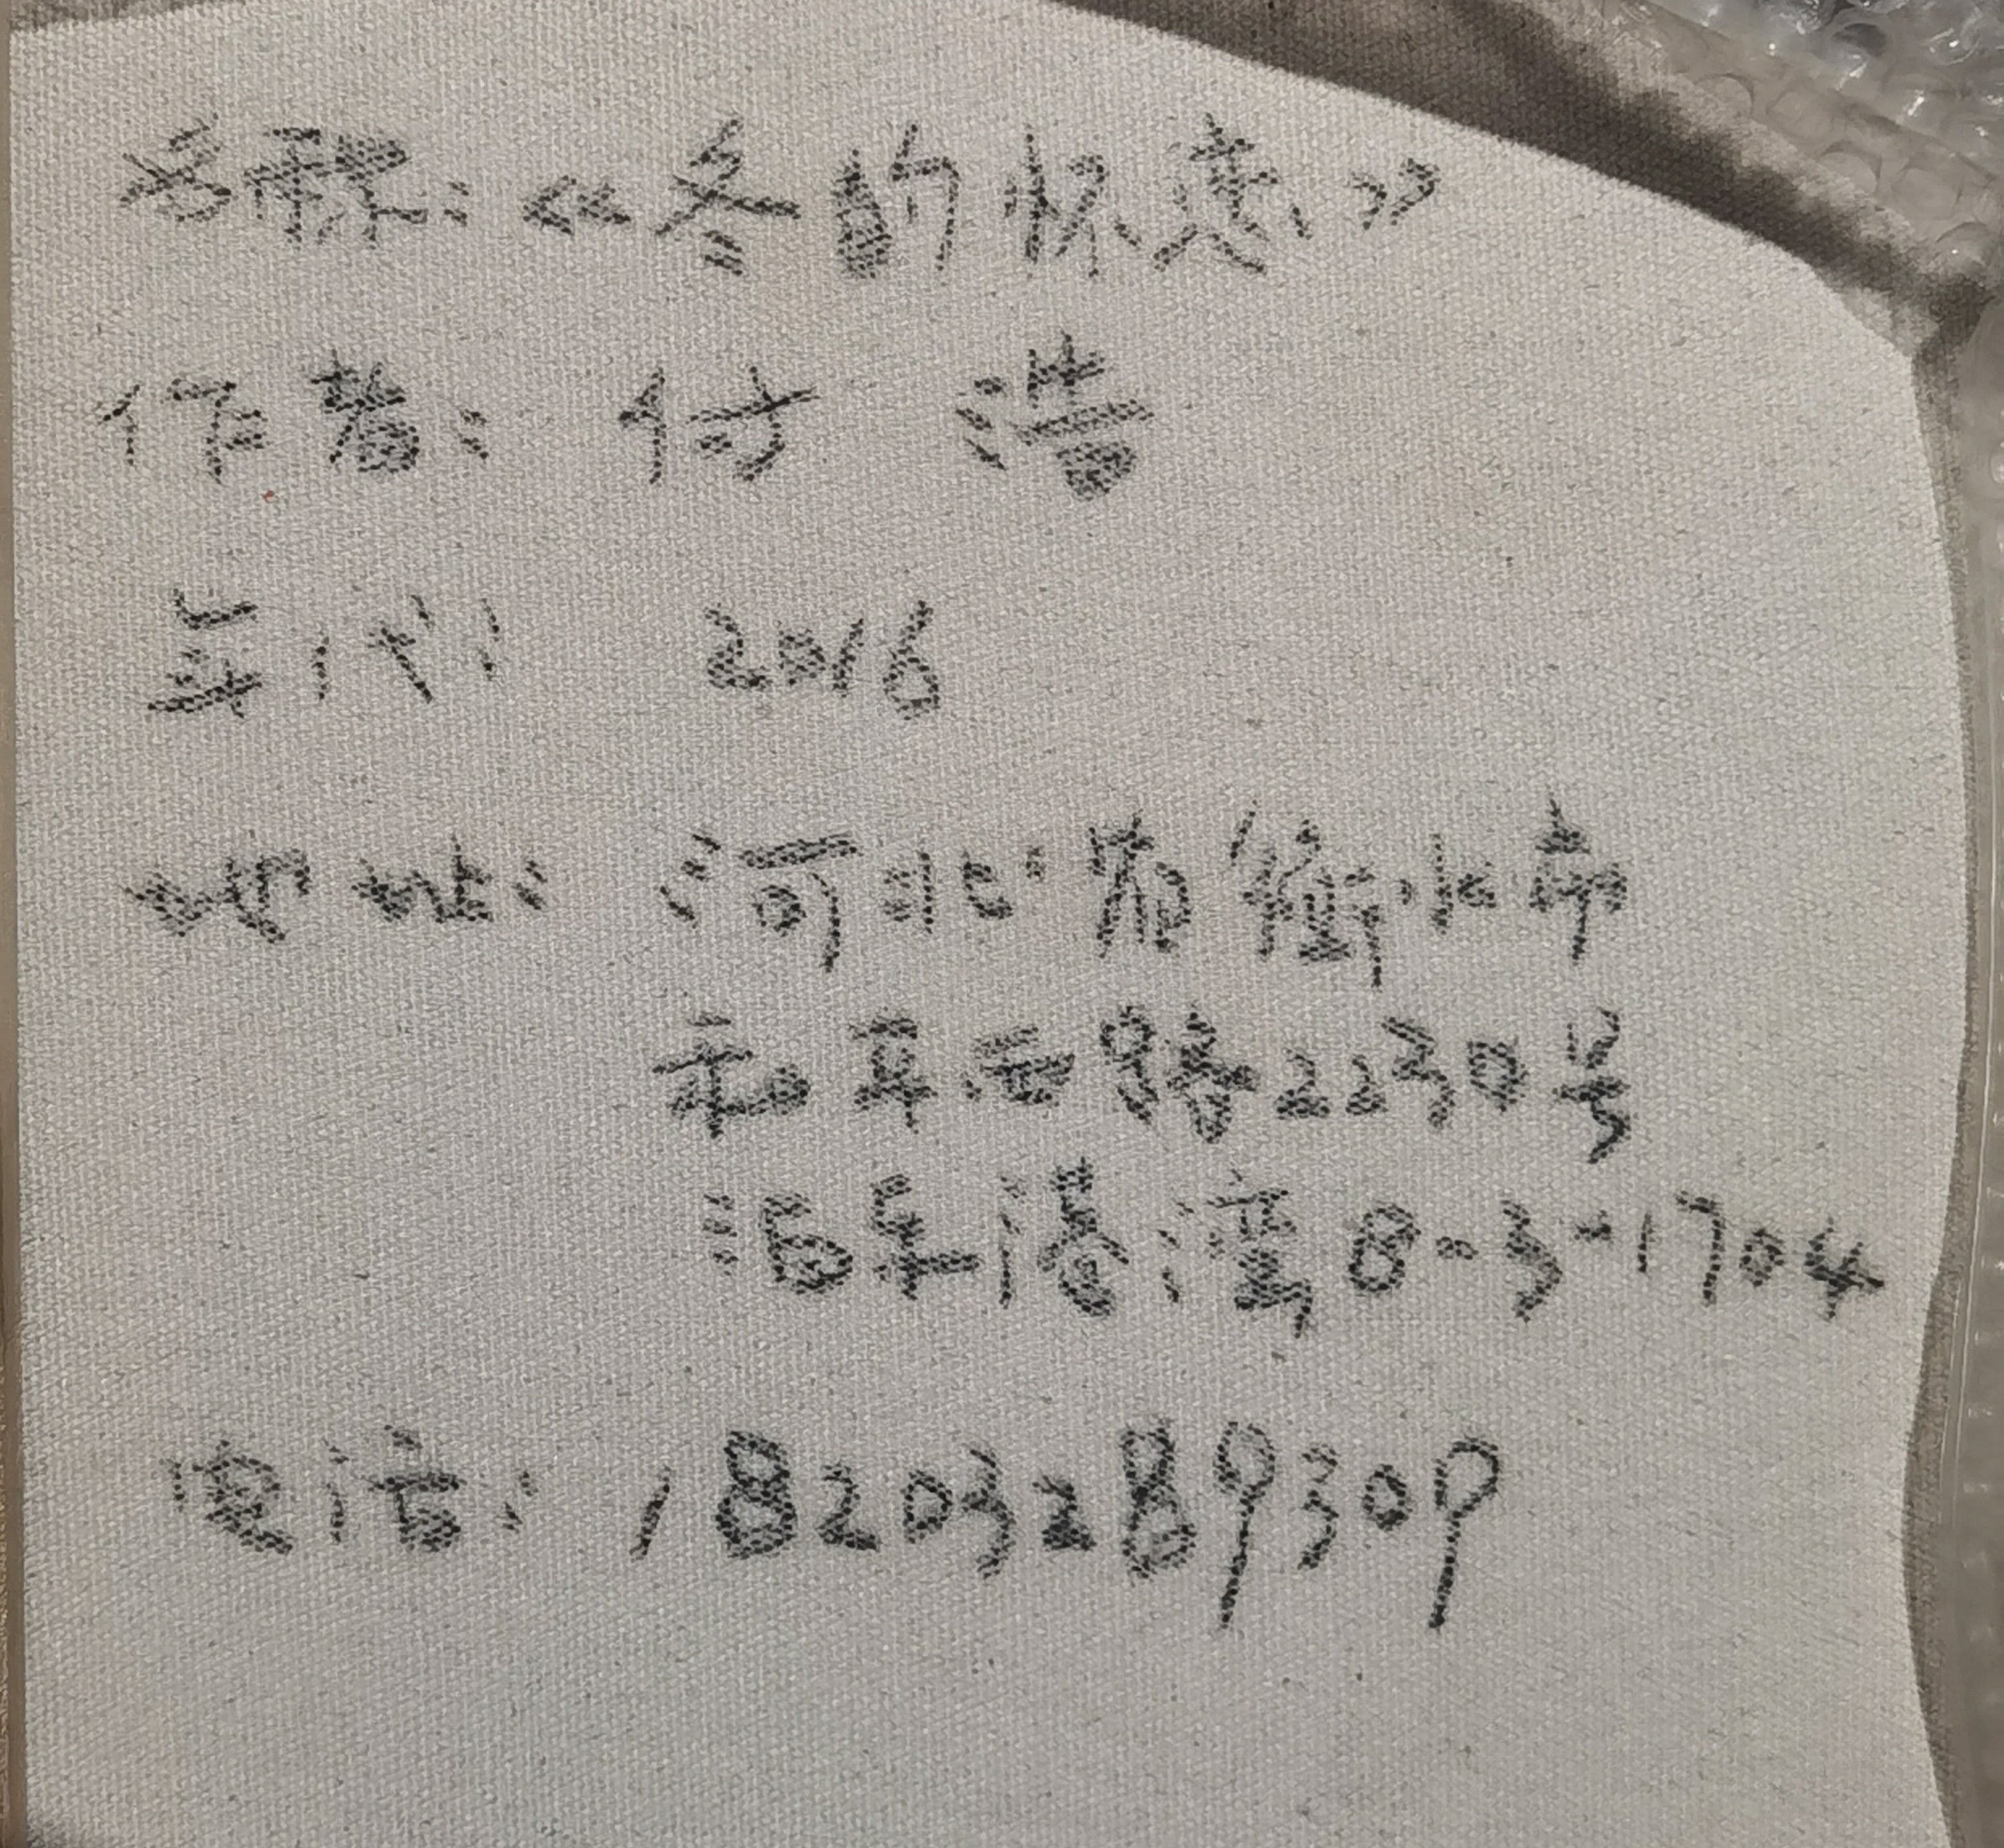 名称:《冬的怀恋》
作者: 付 浩
年代 2016
地址: 河北省衡水市
和平西路2230号
滏阳港湾8-3-1704
电话: 18203289309